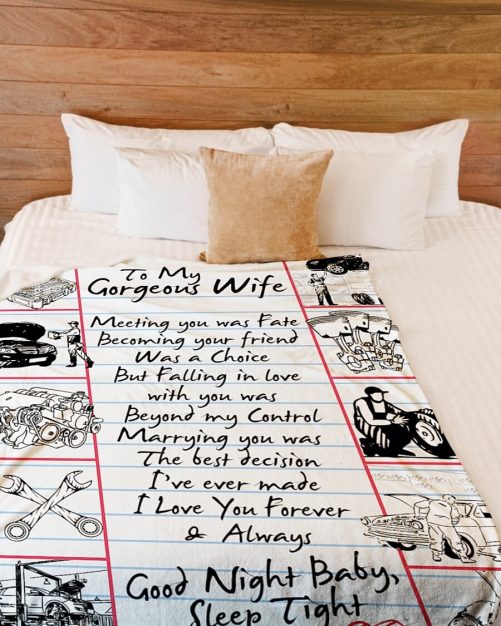 To My
Gorgeous Wife
Meeting you was Fate
Becoming your friend
Was a Choice
But Falling in love
with you was
Beyond my Control
Marrying you was
The best decision
I've ever made
I Love You Forever
& Always
Good Night Baby,
Sleep Tight